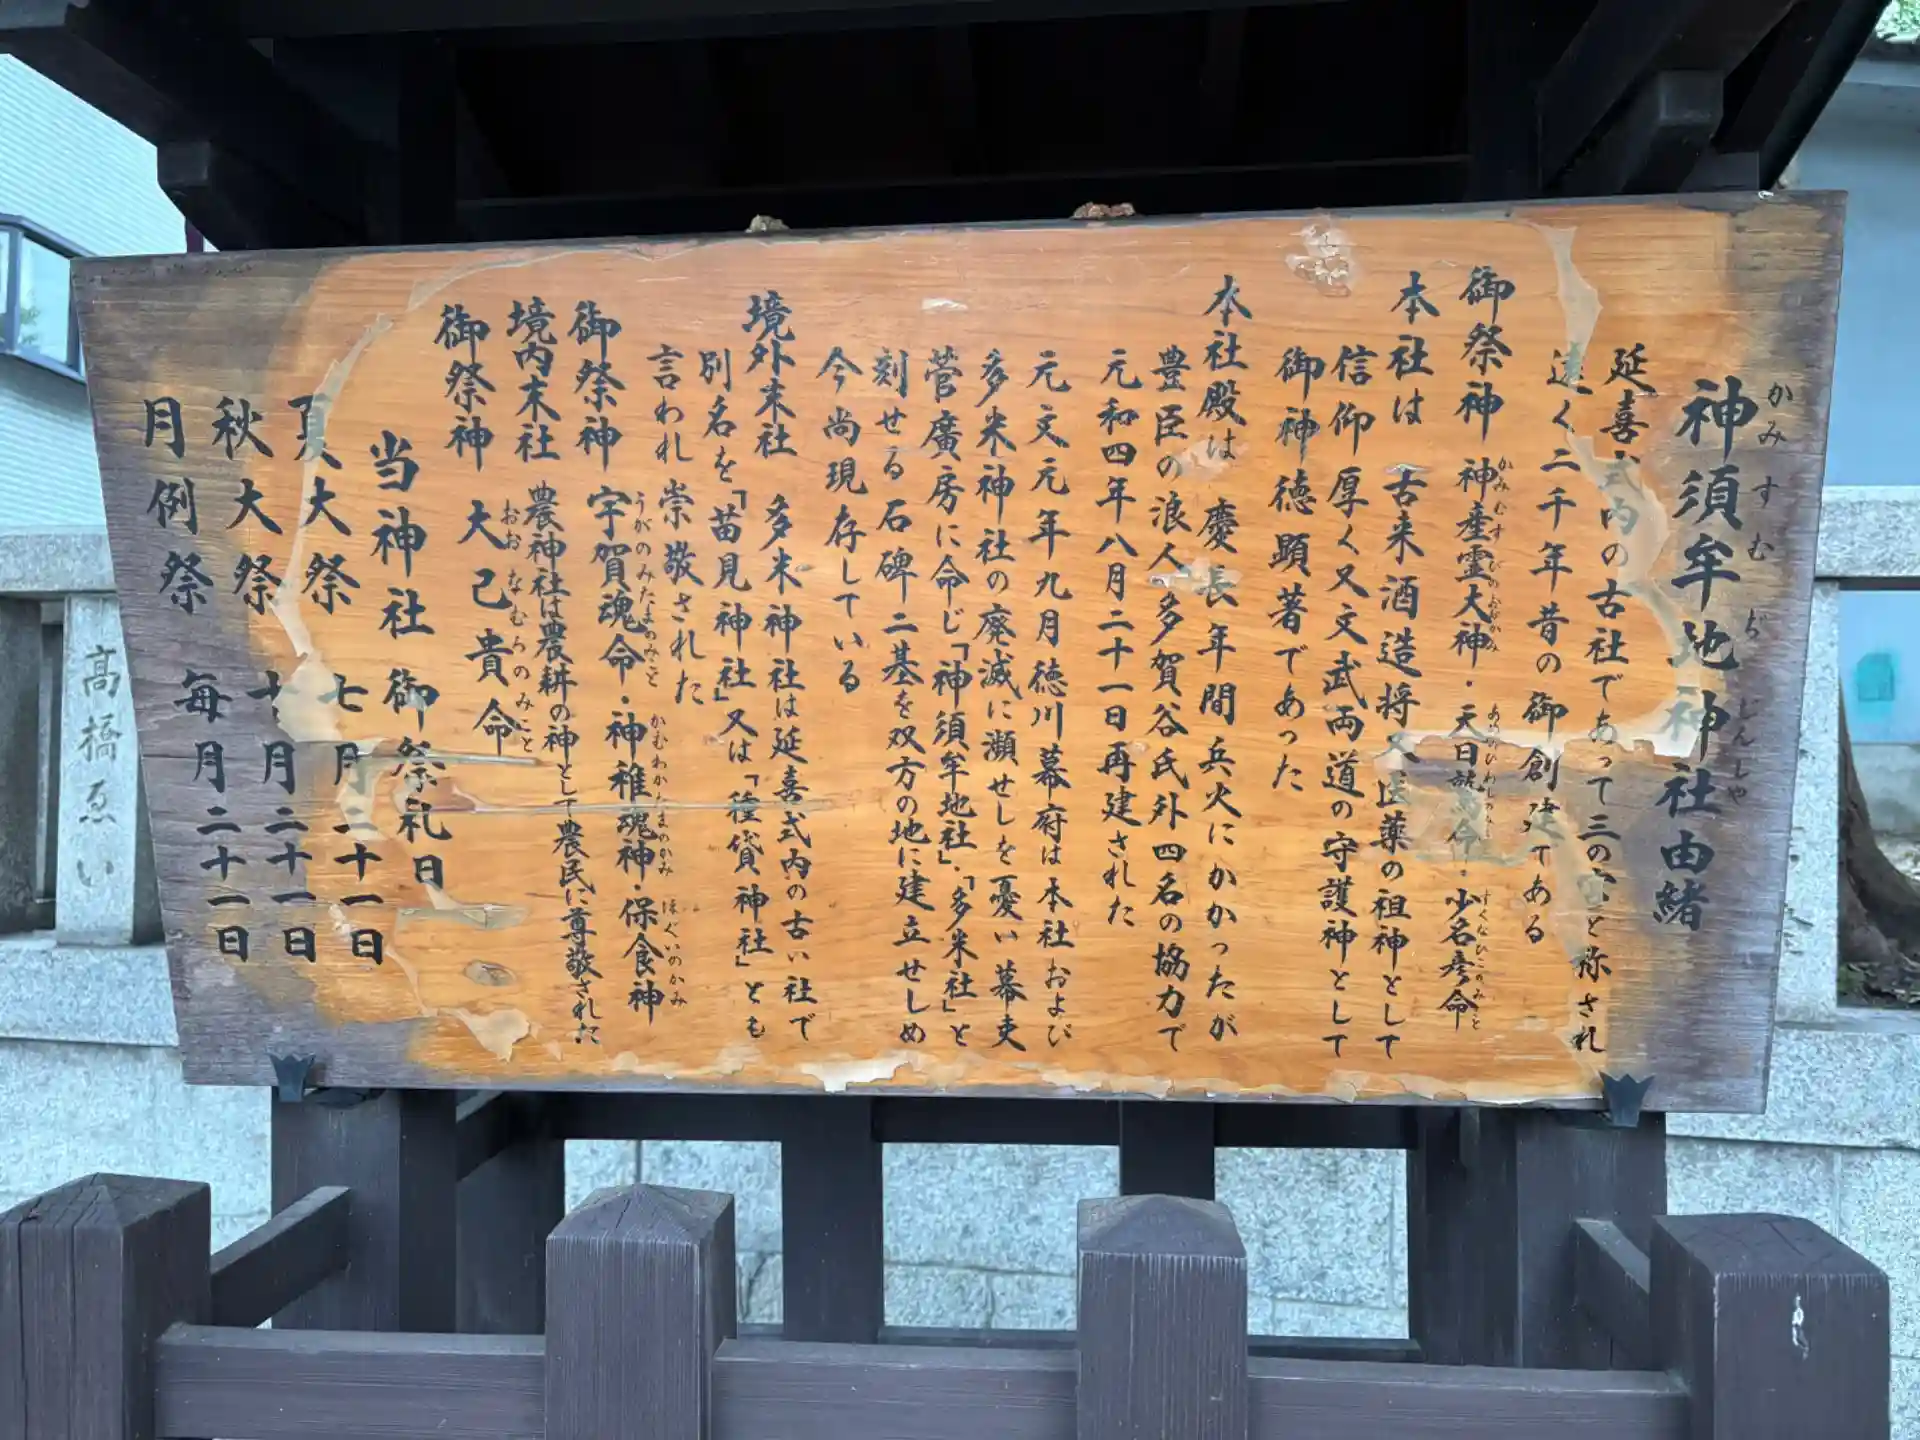 神須牟地神社由緒
かみすむぢじんじゃ
延喜式内の古社であって三の宮と称され
遠く二千年昔の御創建である
御祭神 神産霊大神・天日鷲命・少名彦命
かみむすびのおおかみ
あめのひわしのみこと
すくなひこのみこと
本社は 古来酒造将又医薬の祖神として
信仰厚く又文武両道の守護神として
御神徳顕著であった
本社殿は 慶長年間兵火にかかったが
豊臣の浪人多賀谷氏外四名の協力で
元和四年八月二十一日再建された
元文元年九月徳川幕府は本社および
多米神社の廃滅に瀬せしを憂い幕吏
菅廣房に命じ「神須牟地社」・「多米社」と
刻せる石碑二基を双方の地に建立せしめ
今尚現存している
境外末社 多米神社は延喜式内の古い社で
別名を「苗見神社」又は「種貸神社」とも
言われ崇敬された
御祭神 宇賀魂命・神稚魂神・保食神
うがのみたまのみこと
かむわかむまのかみ
ほぐいのかみ
境内末社 農神社は農耕の神として農民に尊敬された
御祭神 大己貴命
おおなむちのみこと
当神社御祭礼日
夏大祭 七月二十一日
秋大祭 十月二十一日
月例祭 毎月二十一日
高橋ゑい